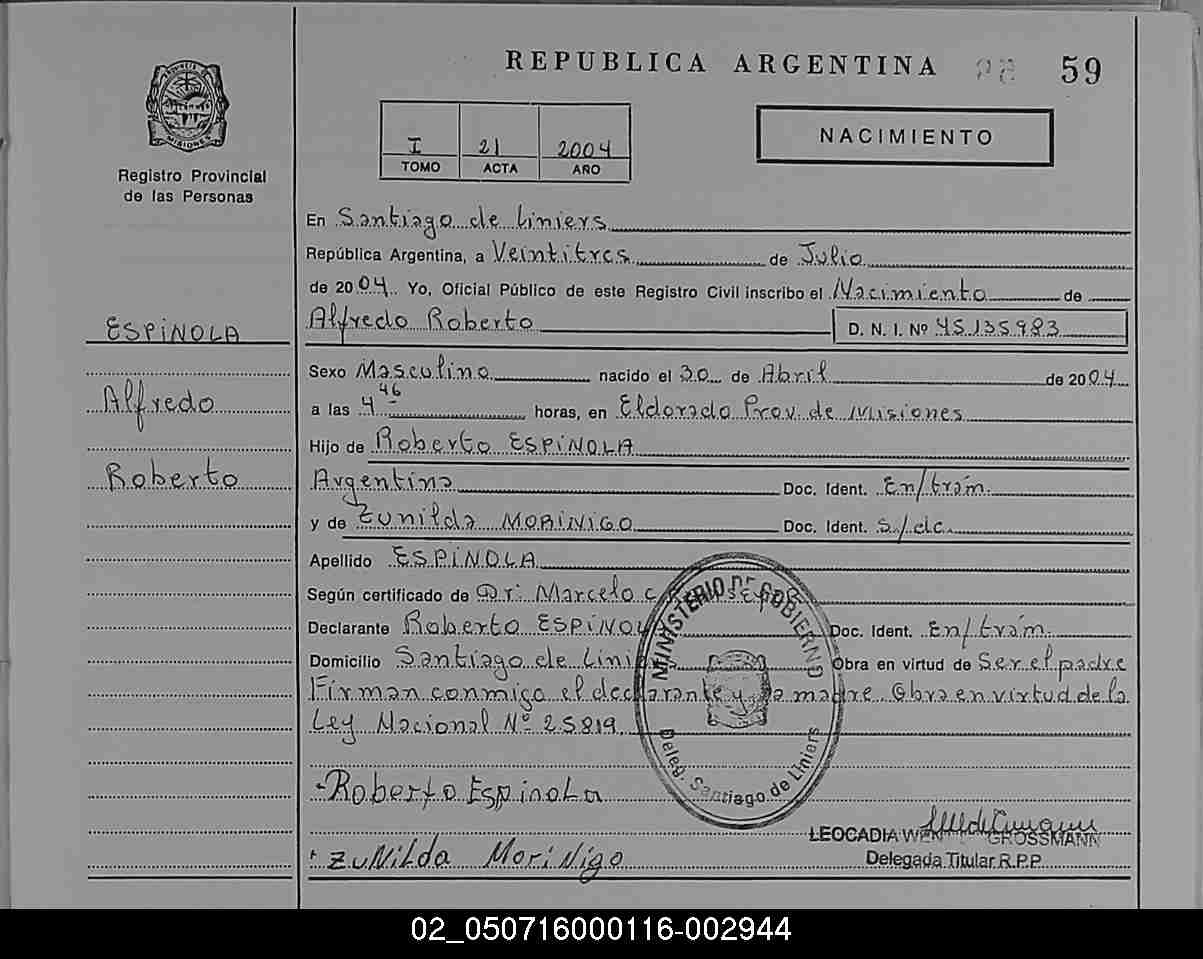 REPUBLICA ARGENTINA 59
PROVINCIA DE
MISIONES
Registro Provincial
de las Personas
I 21 2004
TOMO ACTA AÑO
NACIMIENTO
En Santiago de Liniers
República Argentina, a Veintitres de Julio
de 2004 Yo, Oficial Público de este Registro Civil inscribo el Nacimiento de
Alfredo Roberto D. N. I. Nº 45.135.983
ESPINOLA
Alfredo
Roberto
Sexo Masculino nacido el 30 de Abril de 2004
a las 4 46 horas, en Eldorado Prov. de Misiones
Hijo de Roberto ESPINOLA
Argentina Doc. Ident. En/trám.
y de Zunilda MORINIGO Doc. Ident. s/dc.
Apellido ESPINOLA
Según certificado de Dr. Marcelo
Declarante Roberto ESPINOLA Doc. Ident. En/trám.
Domicilio Santiago de Liniers Obra en virtud de Ser el padre
Firman conmigo el declarante y la madre. Obra en virtud de la
Ley Nacional Nº 25819
MINISTERIO DE GOBIERNO
Deleg. Santiago de Liniers
Roberto EspinoLa
ZuNiLda MoriNigo
LEOCADIA GROSSMANN
Delegada Titular R.P.P.
02_050716000116-002944